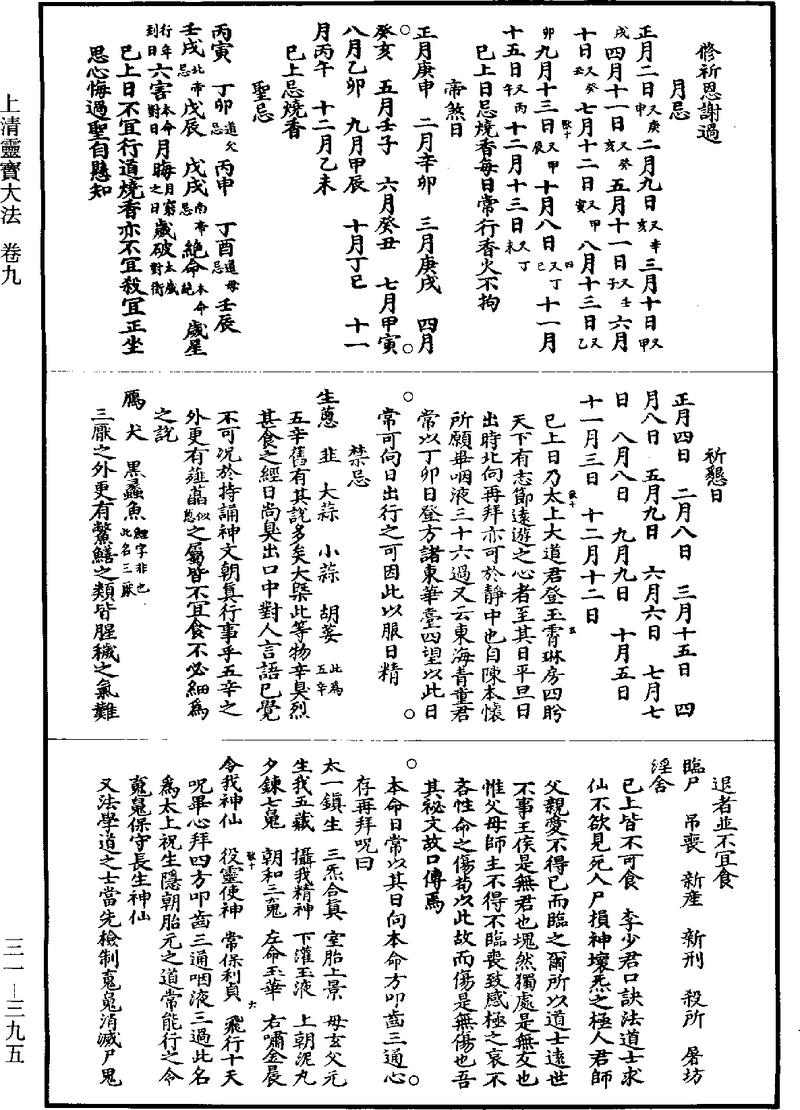 上清靈寶大法 卷九
三一－三九五
修祈恩謝過
月忌
正月二日又庚申 二月九日又辛亥 三月十日又甲
戌 四月十一日又癸亥 五月十一日又壬子 六月
十日又癸丑 七月十二日又甲寅 八月十三日又乙
卯 九月十三日又甲辰 十月八日又丁巳 十一月
十五日又丙午 十二月十三日又丁未
已上日忌燒香每日常行香火不拘
帝煞日
正月庚申 二月辛卯 三月庚戌 四月
癸亥 五月壬子 六月癸丑 七月甲寅
八月乙卯 九月甲辰 十月丁巳 十一
月丙午 十二月乙未
已上忌燒香
聖忌
丙寅 丁卯道父忌 丙申 丁酉道母忌 壬辰
壬戌北帝忌 戊辰 戊戌南帝忌 絶命本命絶 歲星
行年到日 六害本命對日 月晦月窮之日 歲破太歲對衝
已上日不宜行道燒香亦不宜殺宜正坐
思心悔過聖自懸知
祈懇日
正月四日 二月八日 三月十五日 四
月八日 五月九日 六月六日 七月七
日 八月八日 九月九日 十月五日
十一月三日 十二月十二日
已上日乃太上大道君登玉霄琳房四眄
天下有志節遠遊之心者至其日平旦日
出時北向再拜亦可於靜中也自陳本懷
所願畢咽液三十六過又云東海青童君
常以丁卯日登方諸東華臺四望以此日
常可向日出行之可因此以服日精
禁忌
生蔥 韭 大蒜 小蒜 胡荽此為五辛
五辛舊有其說多矣大槩此等物辛臭烈
甚食之經日尚臭出口中對人言語已覺
不可況於持誦神文朝真行事乎五辛之
外更有薤藠似蔥之屬皆不宜食不必細為
之說
鴈 犬 黑蠡魚鯉字非也此名三厭
三厭之外更有鱉鱔之類皆腥穢之氣難
退者並不宜食
臨尸 弔喪 新産 新刑 殺所 屠坊
淫舍
已上皆不可食 李少君口訣法道士求
仙不欲見死人尸損神壞炁之極人君師
父親愛不得已而臨之爾所以道士遠世
不事王侯是無君也塊然獨處是無友也
惟父母師主不得不臨喪致感極之哀不
吝性命之傷茍以此故而傷是無傷也吾
其祕文故口傳焉
本命日常以其日向本命方叩齒三通心
存再拜呪曰
太一鎮生 三炁合真 室胎上景 母玄父元
生我五藏 攝我精神 下灌玉液 上朝泥丸
夕鍊七䰟 朝和三䰟 左命玉華 右嘯金晨
令我神仙 役靈使神 常保利貞 飛行十天
呪畢心拜四方叩齒三通咽液三過此名
為太上祝生隱朝胎元之道常能行之令
䰟䰟保守長生神仙
又法學道之士當先檢制䰟䰟消滅尸鬼